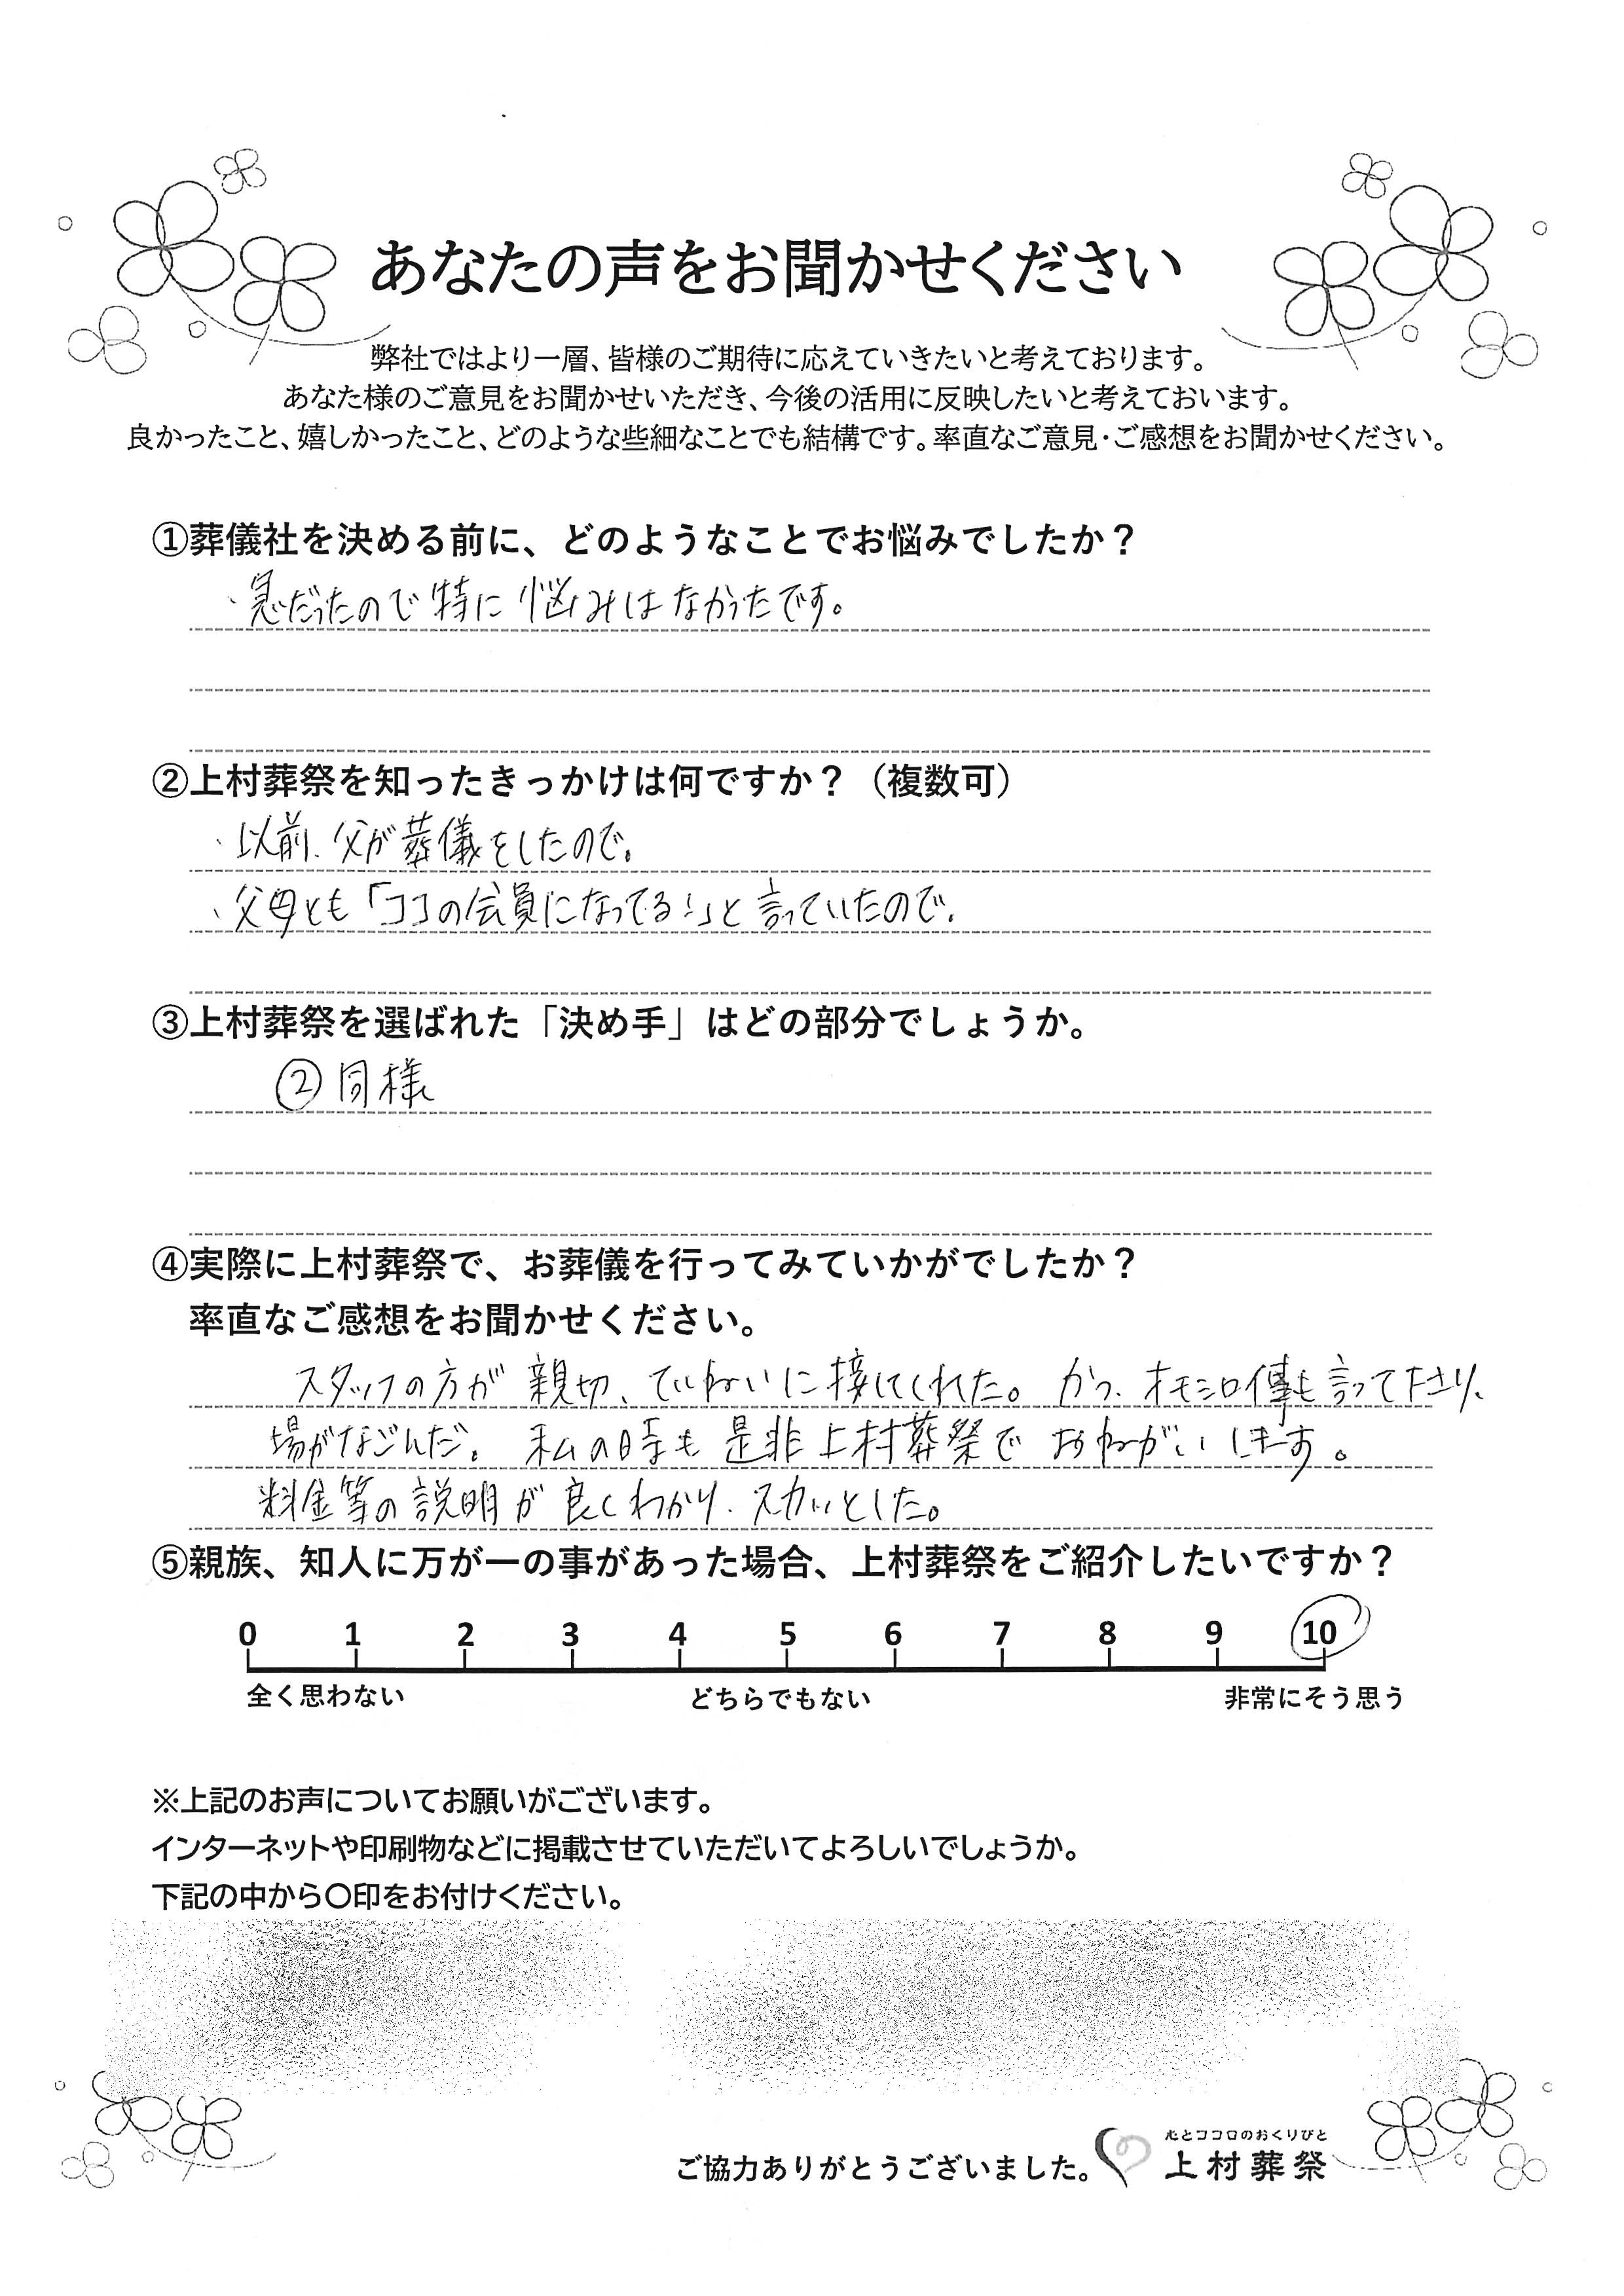 あなたの声をお聞かせください
弊社ではより一層、皆様のご期待に応えていきたいと考えております。
あなた様のご意見をお聞かせいただき、今後の活用に反映したいと考えておいます。
良かったこと、嬉しかったこと、どのような些細なことでも結構です。率直なご意見・ご感想をお聞かせください。
①葬儀社を決める前に、どのようなことでお悩みでしたか？
・急だったので特に悩みはなかったです。
②上村葬祭を知ったきっかけは何ですか？（複数可）
・以前、父が葬儀をしたので。
・父母とも「ココの会員になってる！」と言っていたので。
③上村葬祭を選ばれた「決め手」はどの部分でしょうか。
②同様
④実際に上村葬祭で、お葬儀を行ってみていかがでしたか？
率直なご感想をお聞かせください。
スタッフの方が親切、ていねいに接してくれた。かつ、オモシロ事も言って下さり、
場がなごんだ。私の時も是非上村葬祭でおねがいします。
料金等の説明が良くわかり、スカッとした。
⑤親族、知人に万が一の事があった場合、上村葬祭をご紹介したいですか？
0 1 2 3 4 5 6 7 8 9 10
全く思わない どちらでもない 非常にそう思う
※上記のお声についてお願いがございます。
インターネットや印刷物などに掲載させていただいてよろしいでしょうか。
下記の中から〇印をお付けください。
心とココロのおくりびと
ご協力ありがとうございました。 上村葬祭